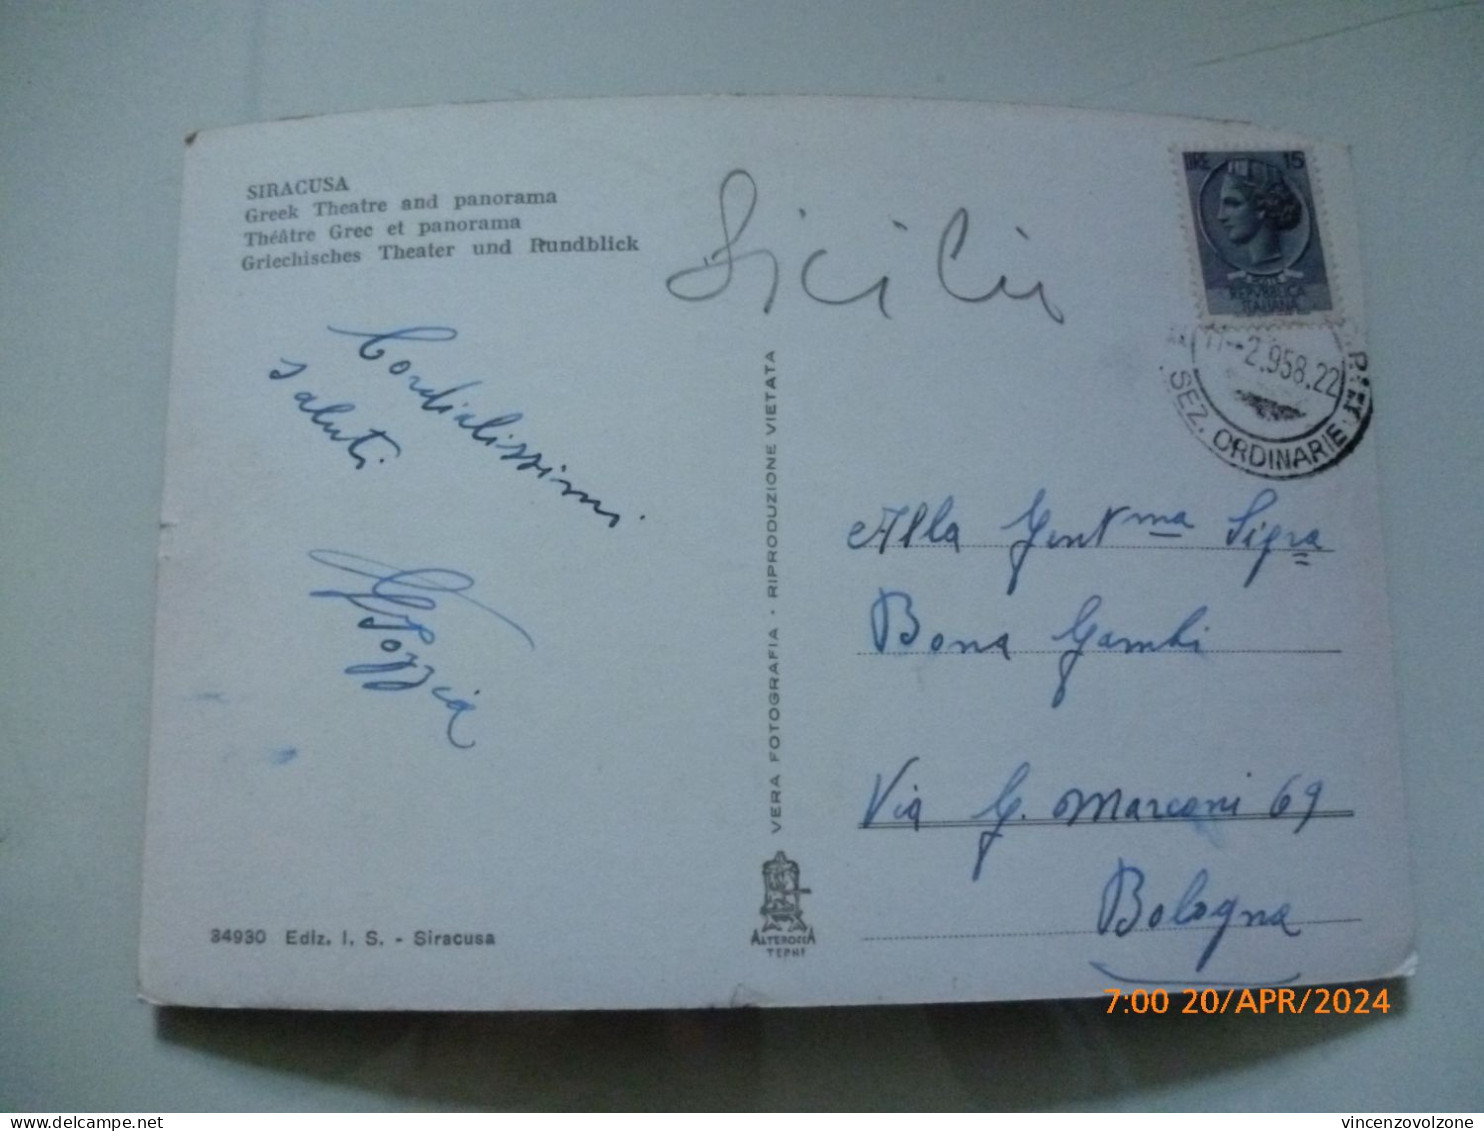 SIRACUSA
Greek Theatre and panorama
Théâtre Grec et panorama
Griechisches Theater und Rundblick
Sicilia
LIRE 15
REPUBBLICA
ITALIANA
2.958.22
SEZ. ORDINARIE
Cordialissimi
saluti
Pozzia
VERA FOTOGRAFIA - RIPRODUZIONE VIETATA
Alla Gent.ma Sig.ra
Bona Gambi
Via G. Marconi 69
Bologna
34930 Ediz. I. S. - Siracusa
ALTEROCCA
TERNI
7:00 20/APR/2024
delcampe.net
vincenzovolzone